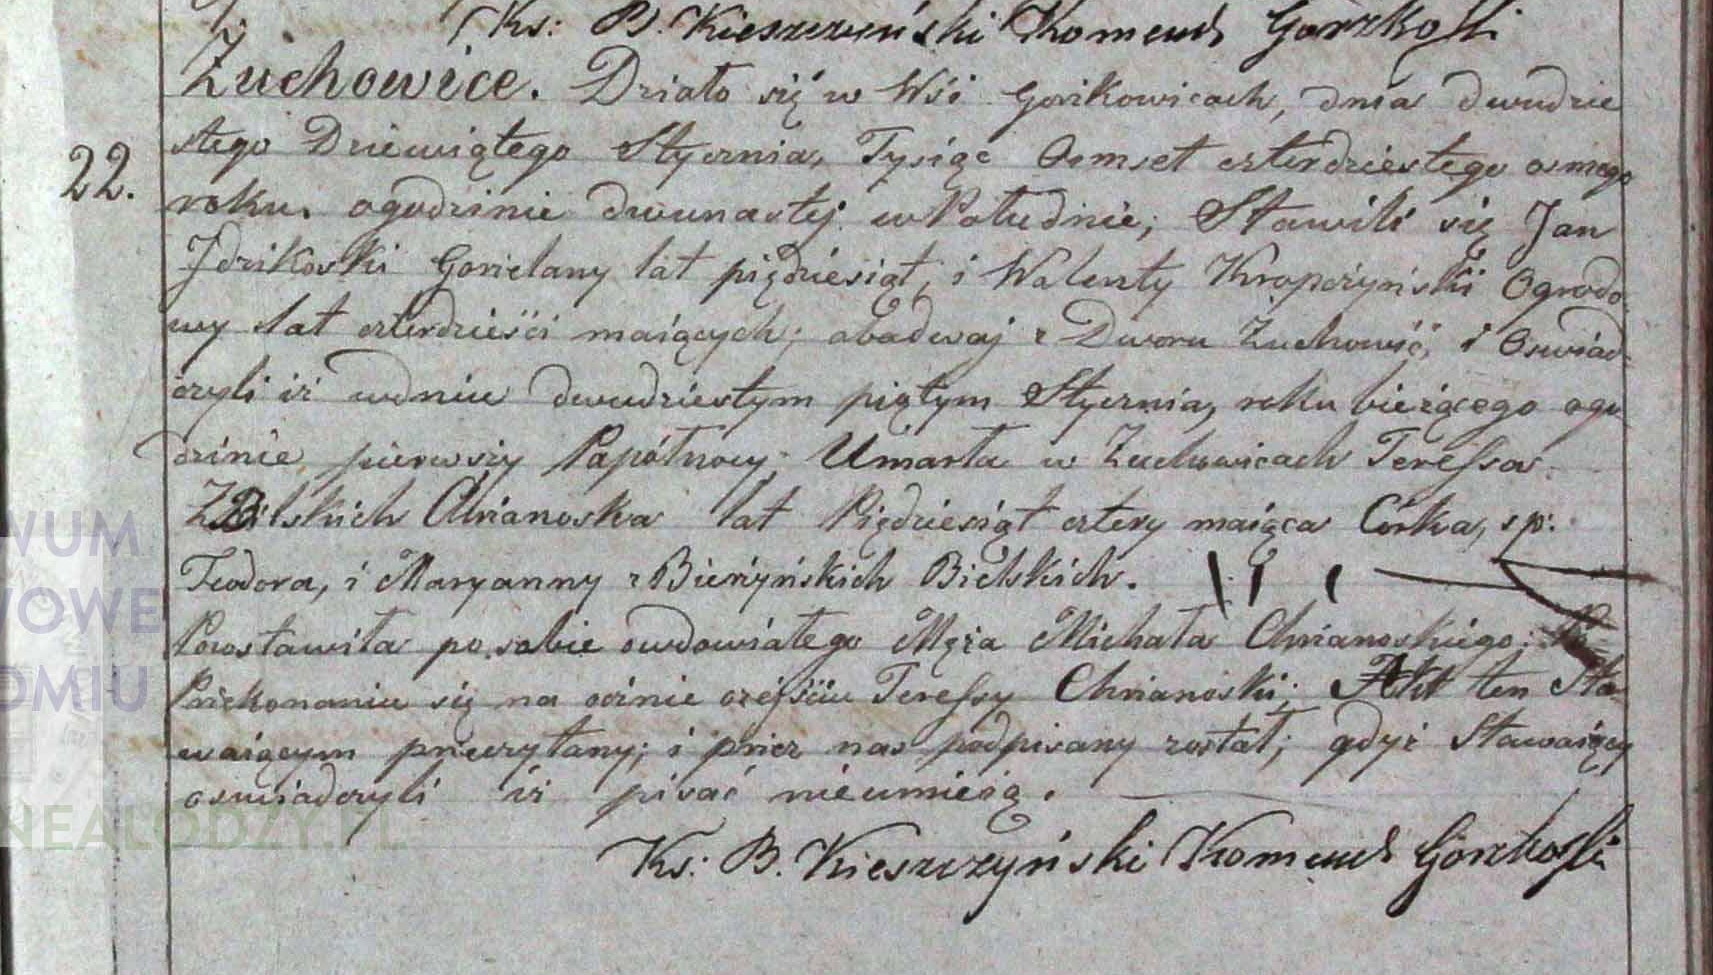 Ks: B. Kieszczyński Komend Gorzkofki
Żuchowice. Działo się w Wsi Gorzkowicach, dnia dwudzie
22.
stego Dziewiątego Stycznia, Tysiąc Osmset czterdziestego osmego
roku. ogodzinie dwunastej w Południe; Stawili się Jan
Jdzikoski Gorzelany lat piędziesiąt, i Walenty Kropczyński Ogrodo
wy lat czterdzieści maiących; obadwaj z Dworu Żuchowic, i Oswiad
czyli iż wdniu dwudziestym piątym Stycznia, roku bieżącego ogo
dzinie pierwszy Popółnocy; Umarła w Żuchowicach Teressa
Z Bilskich Chrzanoska lat Piędziesiąt cztery maiąca Córka, sp:
Teodora, i Maryanny z Bieńzyńskich Bielskich.
Pozostawiła po sobie owdowiałego Męża Michała Chrzanoskiego;
Przekonaniu się na ocznie zejściu Teressy Chrzanoski; Akt ten Sta
waiącym przeczytany; i przez nas podpisany został; gdyż Stawaiący
oswiadczyli iż pisać nieumieią.
Ks: B. Kieszczyński Komend Gorzkofki
WUM
WOWE
OMIU
NEALODZY.PL